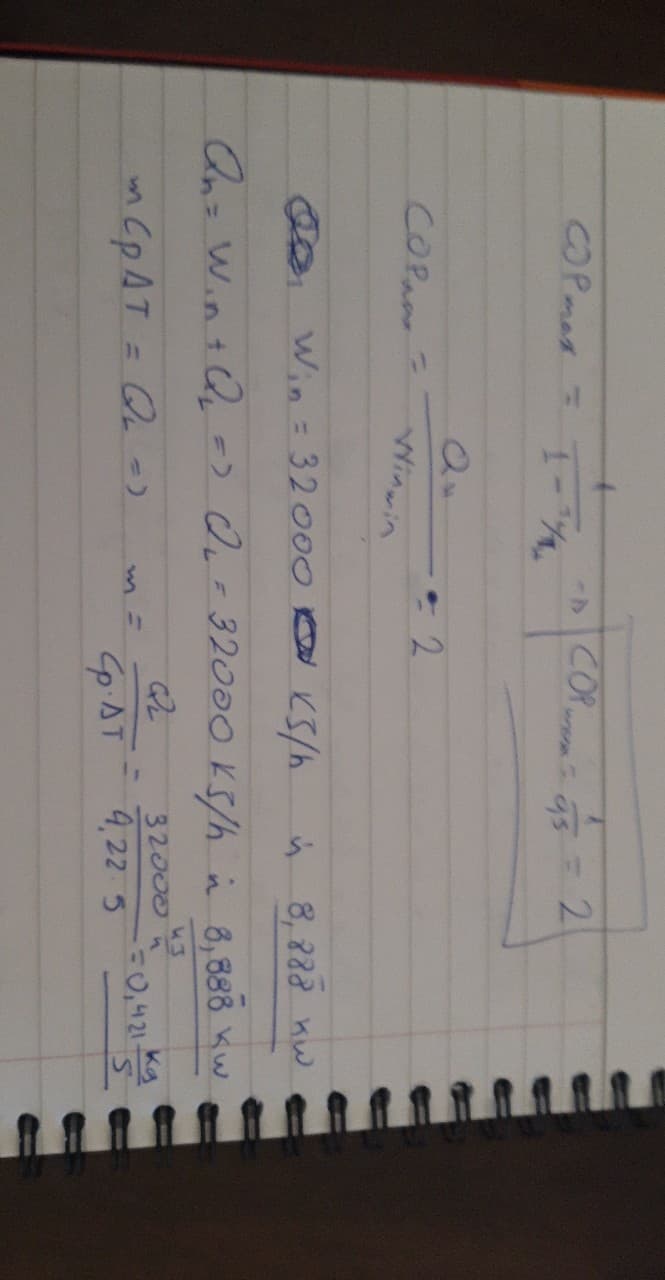 COPmax = 1 / (1 - TL/TH) → COPmax = 1/0,5 = 2
COPmax = QH / Winmin = 2
Win = 32000 KJ/h ή 8,888̄ KW
Qh = Win + QL => QL = 32000 KJ/h ή 8,888̄ KW
m Cp ΔT = QL => m = QL / (Cp·ΔT) = 32000 KJ/h / (4,22·5) = 0,421 Kg/s